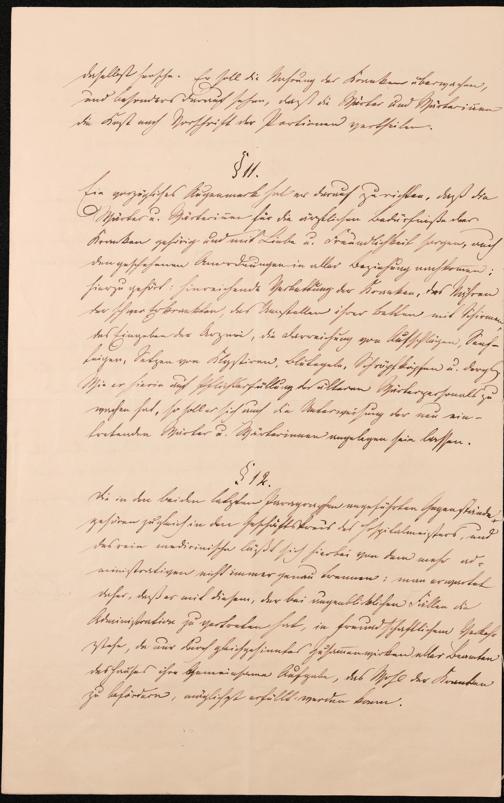 daselbst herrsche. Er soll die Nahrung der Kranken überwachen,
und besonders darauf sehen, daß die Wärter und Wärterinnen
die Kost nach Vorschrift der Portionen vertheilen.
§ 11.
Ein vorzügliches Augenmerk hat er darauf zu richten, daß die
Wärter u. Wärterinnen für die ärztlichen Bedürfniße der
Kranken gehörig und mit Liebe u. Freundlichkeit sorgen, auch
den gegebenen Anordnungen in aller Beziehung nachkommen;
hierzu gehört: hinreichende Verbettung der Kranken, das
der schwer Erkrankten, das Umstellen ihrer Betten mit Schirmen
das Eingeben der Arznei, die Darreichung von Aufschlägen, Senf-
teigen, Setzen von Klystiren, Blutegeln, Schröpfköpfen u. dergl.
Wie er hierin auf Pflichterfüllung des älteren Wärterpersonals zu
wachen hat, so soll er sich auch die Unterweisung der neu ein-
tretenden Wärter u. Wärterinnen angelegen sein lassen.
§ 12.
Die in den beiden letzten Paragraphen angeführten Gegenstände
gehören zugleich in den Geschäftskreis des Hospitalmeisters, und
das rein medicinische läßt sich hierbei von dem mehr ad-
ministrativen nicht immer genau trennen; man erwartet
daher, daß er mit diesem, der bei augenblicklichen Fällen die
Administration zu vertreten hat, in freundschaftlichem Verkehr
stehe, da nur durch gleichgesinntes Zusammenwirken aller Beamten
des Hauses ihre gemeinsame Aufgabe, das Wohl der Kranken
zu befördern, möglichst erfüllt werden kann.